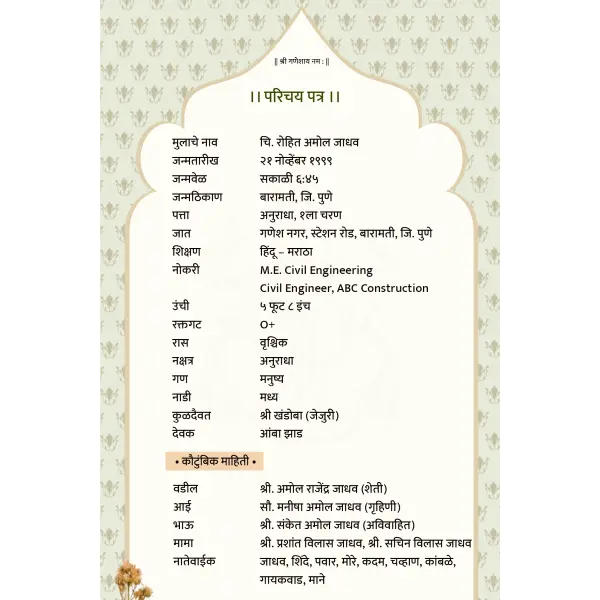 || श्री गणेशाय नम : ||
।। परिचय पत्र ।।
मुलाचे नाव चि. रोहित अमोल जाधव
जन्मतारीख २१ नोव्हेंबर १९९९
जन्मवेळ सकाळी ६:४५
जन्मठिकाण बारामती, जि. पुणे
पत्ता अनुराधा, १ला चरण
जात गणेश नगर, स्टेशन रोड, बारामती, जि. पुणे
शिक्षण हिंदू – मराठा
नोकरी M.E. Civil Engineering
Civil Engineer, ABC Construction
उंची ५ फूट ८ इंच
रक्तगट O+
रास वृश्चिक
नक्षत्र अनुराधा
गण मनुष्य
नाडी मध्य
कुळदैवत श्री खंडोबा (जेजुरी)
देवक आंबा झाड
• कौटुंबिक माहिती •
वडील श्री. अमोल राजेंद्र जाधव (शेती)
आई सौ. मनीषा अमोल जाधव (गृहिणी)
भाऊ श्री. संकेत अमोल जाधव (अविवाहित)
मामा श्री. प्रशांत विलास जाधव, श्री. सचिन विलास जाधव
नातेवाईक जाधव, शिंदे, पवार, मोरे, कदम, चव्हाण, कांबळे,
गायकवाड, माने